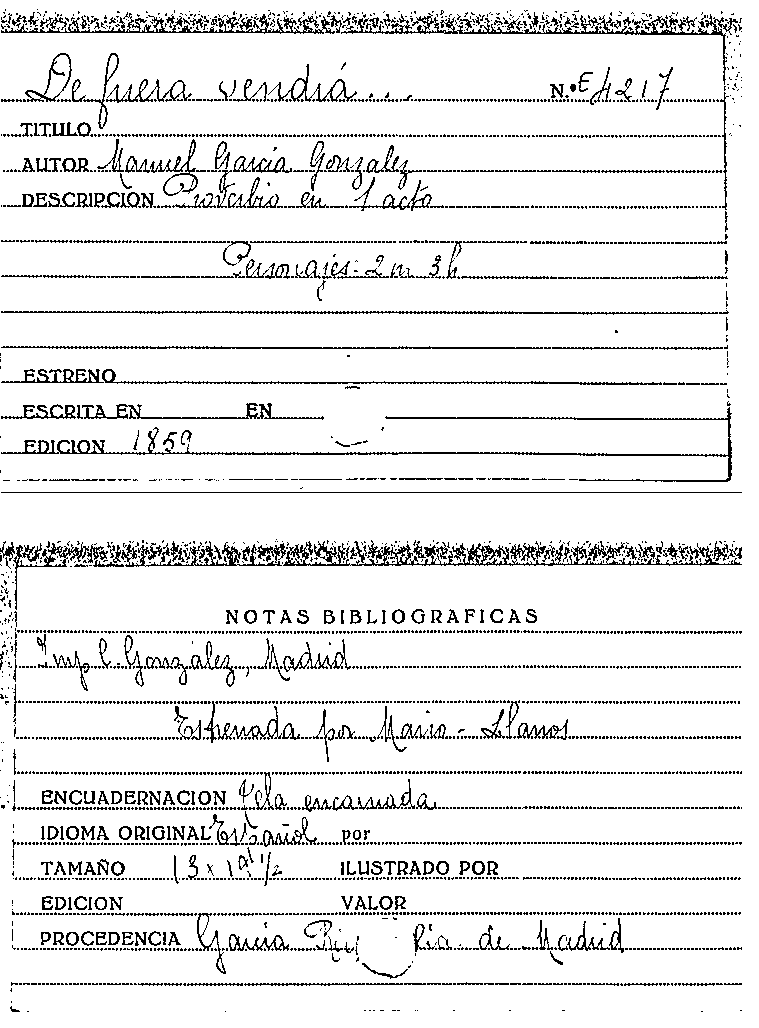 De fuera vendrá... N.º E 4217
TITULO
AUTOR Manuel García González
DESCRIPCION Proverbio en 1 acto
Personajes: 2 m 3 h
ESTRENO
ESCRITA EN EN
EDICION 1859
NOTAS BIBLIOGRAFICAS
Imp. C. González, Madrid
Estrenada por Mario - Llanos
ENCUADERNACION Tela encarnada
IDIOMA ORIGINAL Español por
TAMAÑO 13 x 19 1/2 ILUSTRADO POR
EDICION VALOR
PROCEDENCIA García de Madrid